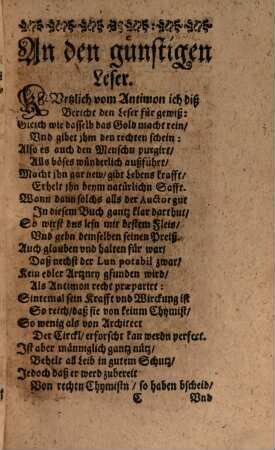 An den günstigen
Leser.
KUrtzlich vom Antimon ich diß
Bericht den Leser für gewiß:
Gleich wie dasselb das Gold macht rein/
Vnd gibet jhm den rechten schein:
Also es auch den Menschn purgirt/
Alls böses wünderlich außführt/
Macht jhn gar new/ gibt Lebens krafft/
Erhelt jhn beym natürlichn Safft.
Wann dann solchs alls der Auctor gut
In diesem Buch gantz klar darthut/
So wirst dus lesn mit bestem Fleis/
Vnd gebn demselben seinen Preiß.
Auch glauben vnd halten für war/
Daß nechst der Lun potabil zwar/
Kein edler Artzney gfunden wird/
Als Antimon recht præparirt:
Sintemal sein Krafft vnd Wirckung ist
So reich/ daß sie von keinm Chymist/
So wenig als von Architect
Der Circkl/ erforscht kan werdn perfect.
Ist aber männiglich gantz nütz/
Behelt als Leib in gutem Schutz/
Jedoch daß er werd zubereit
Von rechtn Chymistn/ so haben bscheid/
C Vnd